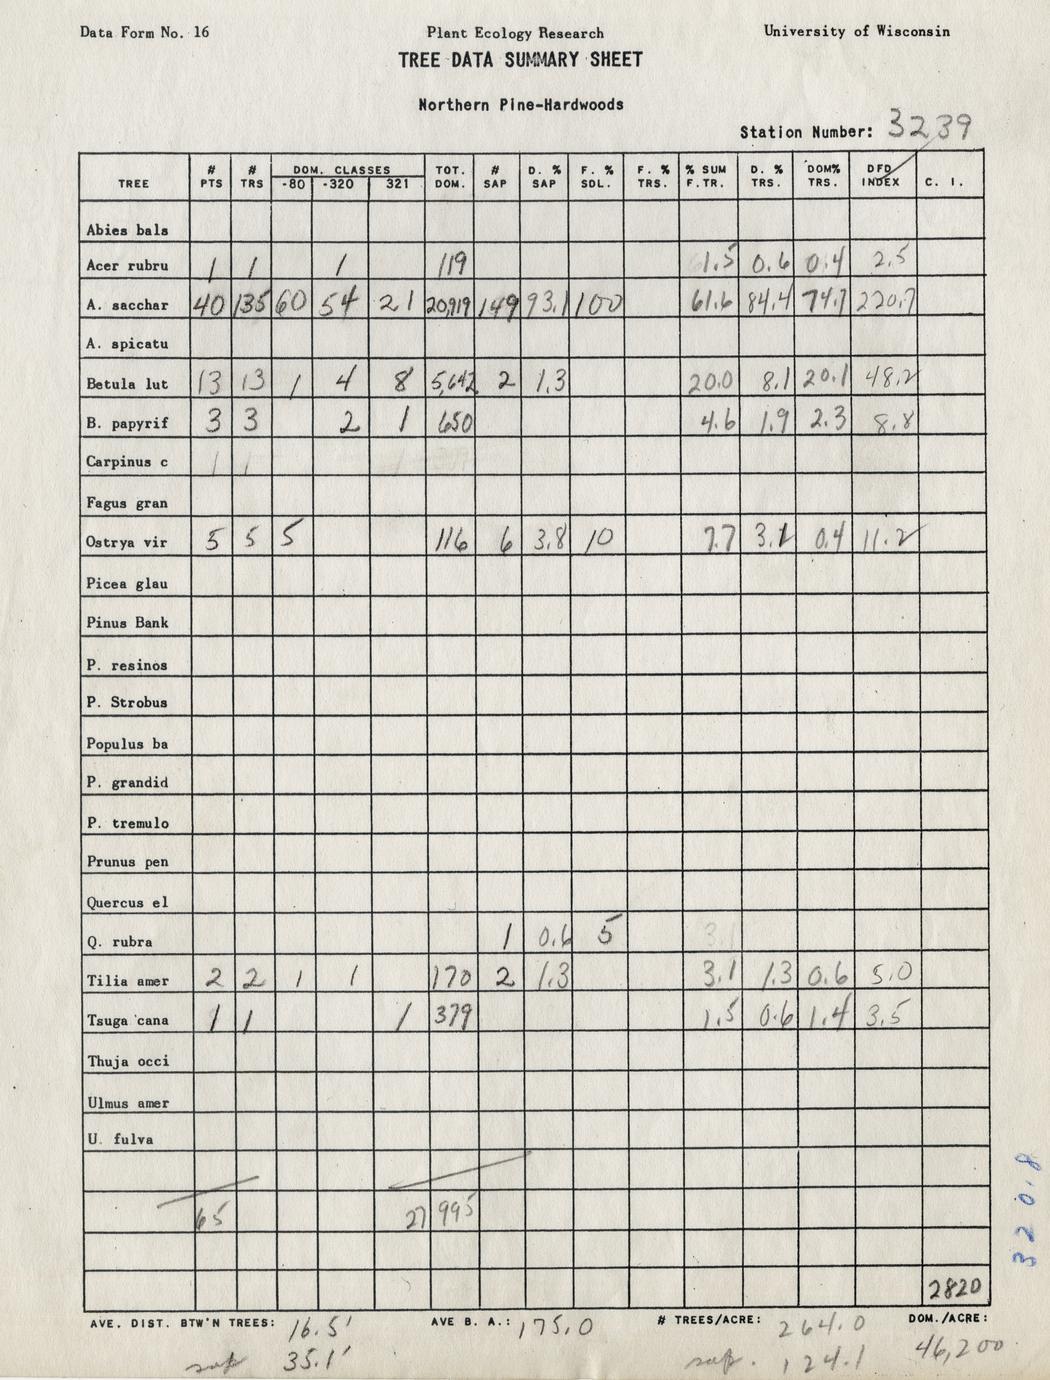 Data Form No. 16 Plant Ecology Research University of Wisconsin
TREE DATA SUMMARY SHEET
Northern Pine-Hardwoods
Station Number: 3239
TREE # PTS # TRS DOM. CLASSES -80 -320 321 TOT. DOM. # SAP D. % SAP F. % SDL. F. % TRS. % SUM F.TR. D. % TRS. DOM% TRS. DFD INDEX C. I.
Abies bals
Acer rubru 1 1 1 119 1.5 0.6 0.4 2.5
A. sacchar 40 135 60 54 21 20,919 149 93.1 100 61.6 84.4 74.7 220.7
A. spicatu
Betula lut 13 13 1 4 8 5,642 2 1.3 20.0 8.1 20.1 48.2
B. papyrif 3 3 2 1 650 4.6 1.9 2.3 8.8
Carpinus c
Fagus gran
Ostrya vir 5 5 5 116 6 3.8 10 7.7 3.1 0.4 11.2
Picea glau
Pinus Bank
P. resinos
P. Strobus
Populus ba
P. grandid
P. tremulo
Prunus pen
Quercus el
Q. rubra 1 0.6 5
Tilia amer 2 2 1 1 170 2 1.3 3.1 1.3 0.6 5.0
Tsuga cana 1 1 1 379 1.5 0.6 1.4 3.5
Thuja occi
Ulmus amer
U. fulva
65 27 995
2820
AVE. DIST. BTW'N TREES: 16.5' AVE B. A.: 175.0 # TREES/ACRE: 264.0 DOM./ACRE:
sap 35.1' sap. 124.1 46,200
320.8